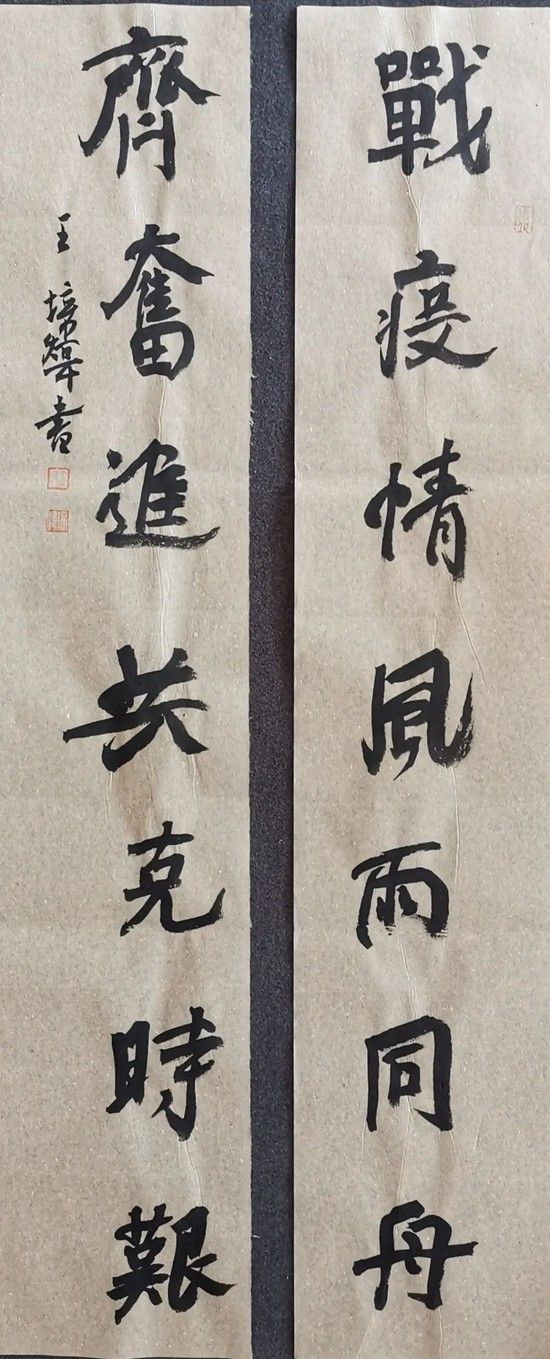 戰疫情風雨同舟
齊奮進共克時艱
王培犖書